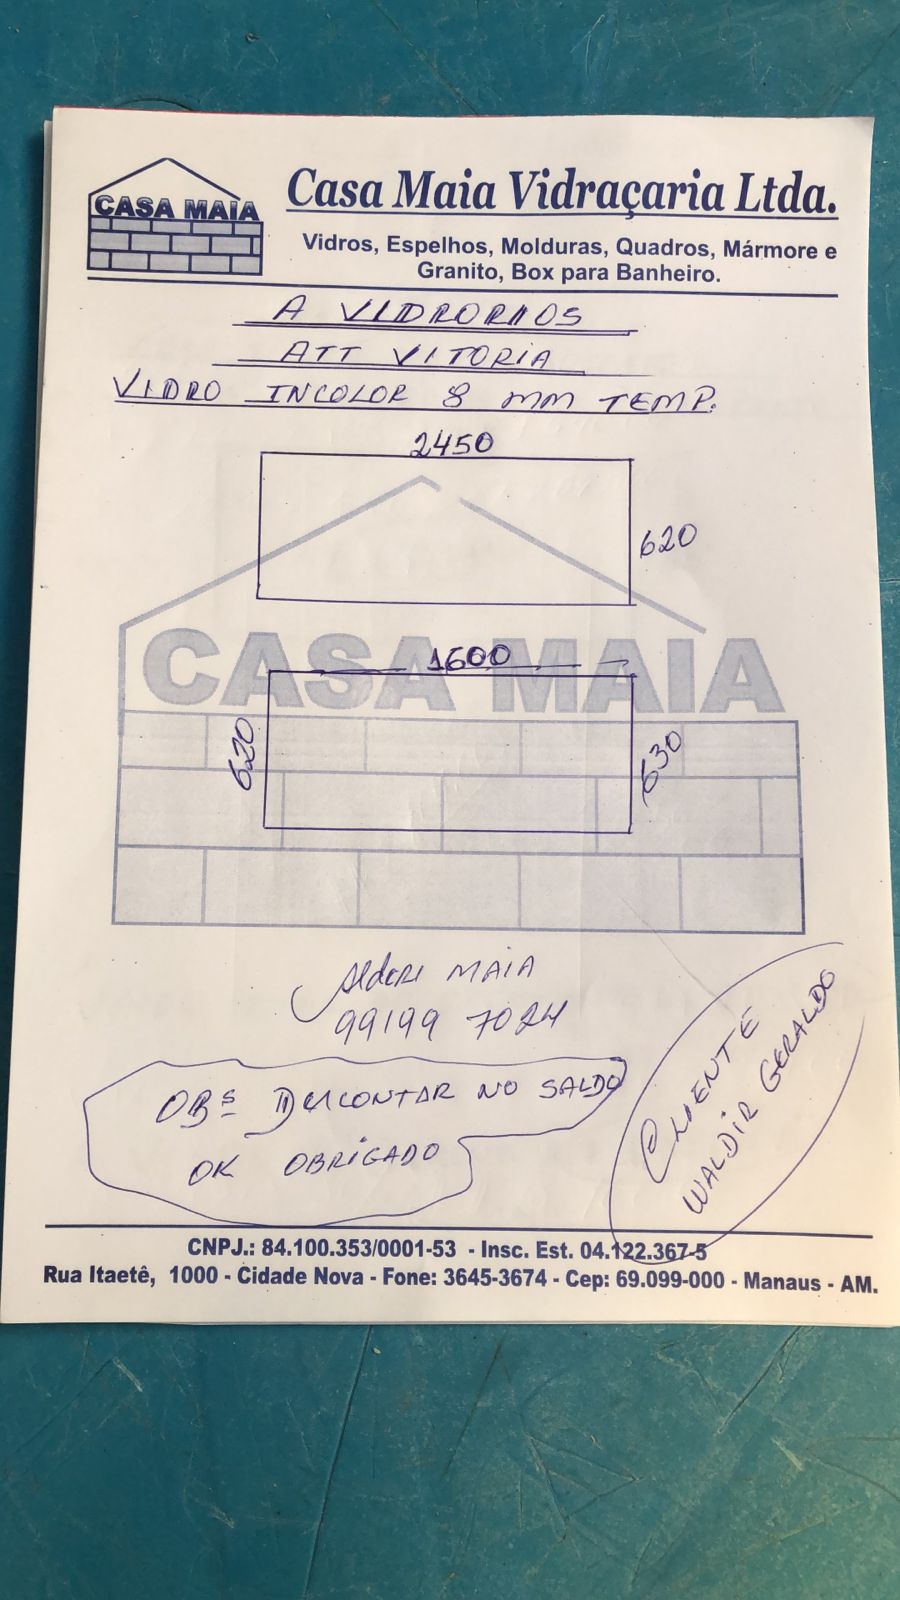 CASA MAIA
Casa Maia Vidraçaria Ltda.
Vidros, Espelhos, Molduras, Quadros, Mármore e
Granito, Box para Banheiro.
A VIDRORIOS
ATT VITORIA
VIDRO INCOLOR 8 MM TEMP.
2450
620
CASA MAIA
1600
620
630
MAIA
99199 7024
OBS DESCONTAR NO SALDO
OK OBRIGADO
CLIENTE
WALDIR GERALDO
CNPJ.: 84.100.353/0001-53 - Insc. Est. 04.122.367-5
Rua Itaetê, 1000 - Cidade Nova - Fone: 3645-3674 - Cep: 69.099-000 - Manaus - AM.